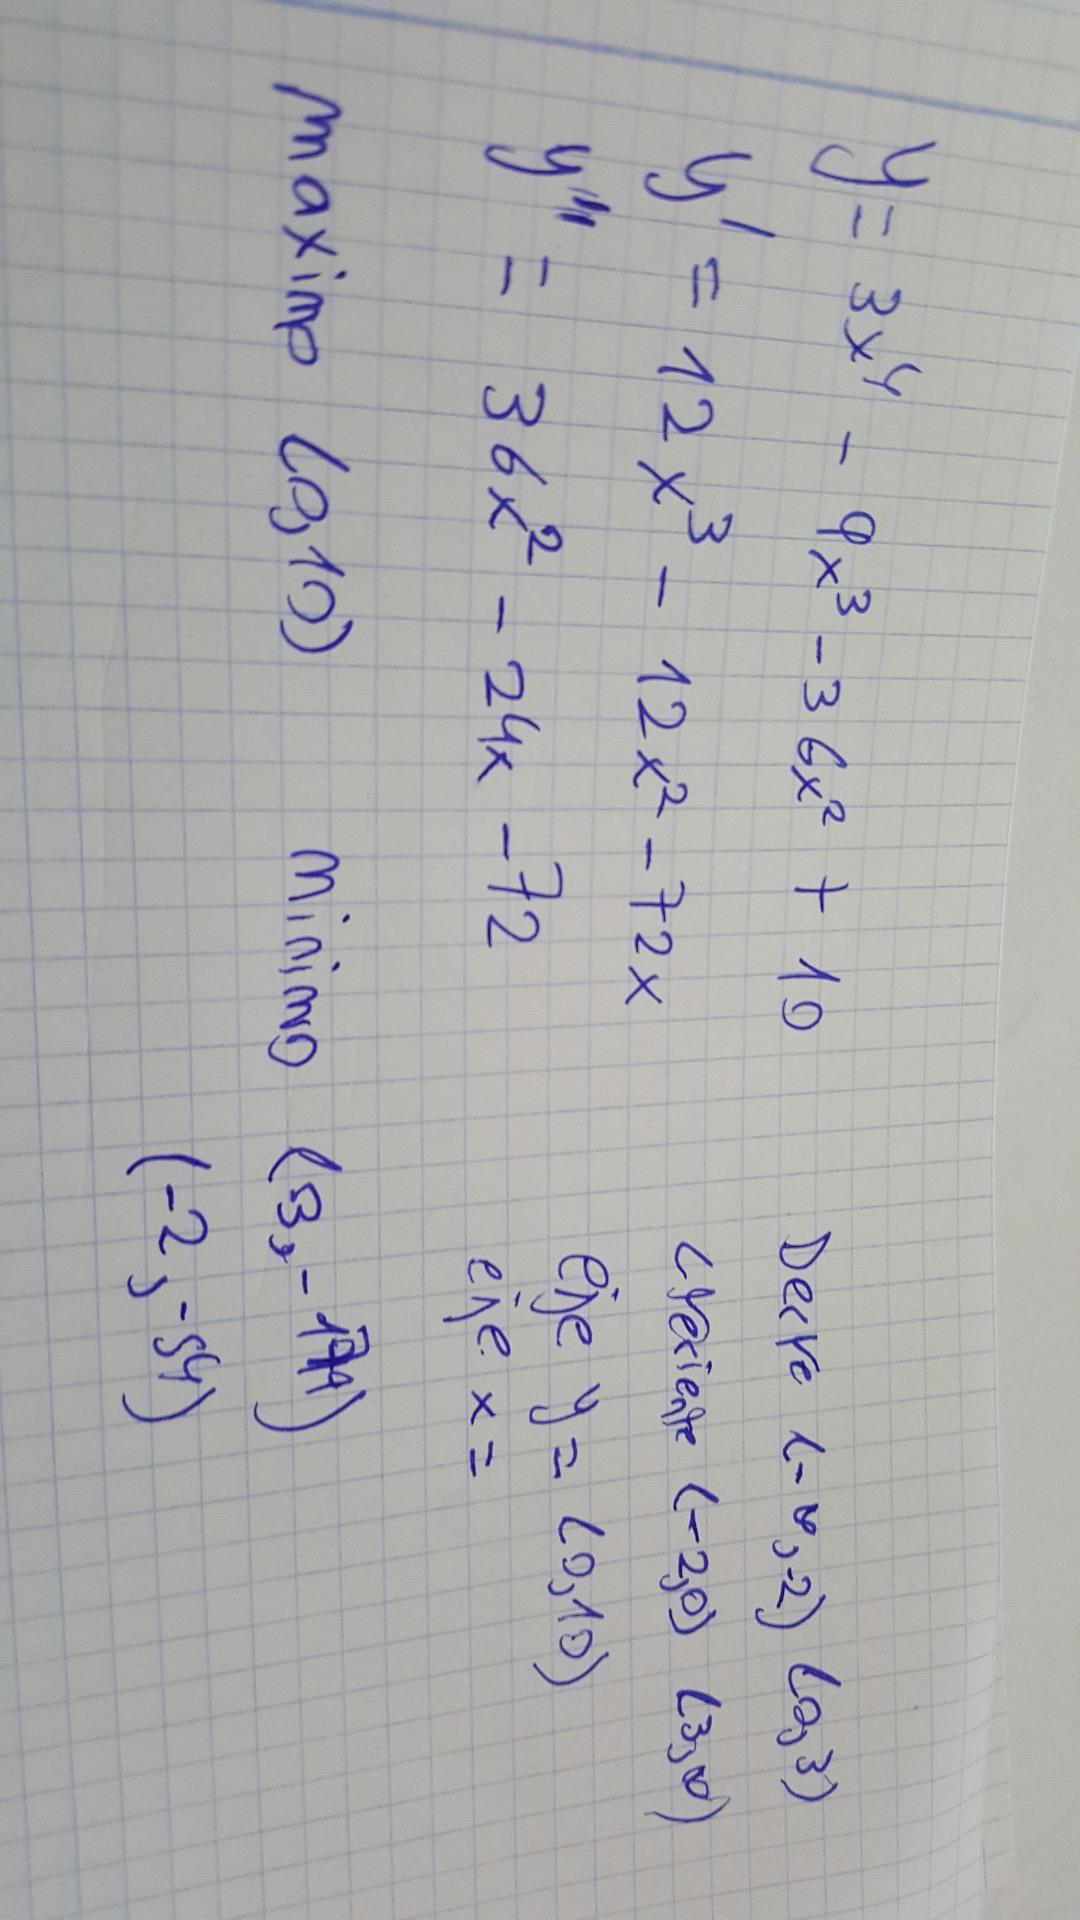 y = 3x⁴ - 4x³ - 36x² + 10
y' = 12x³ - 12x² - 72x
y'' = 36x² - 24x - 72
maximo (0,10) minimo (3,-179)
(-2,-54)
Decre (-∞,-2) (0,3)
creciente (-2,0) (3,∞)
eje y = (0,10)
eje x =